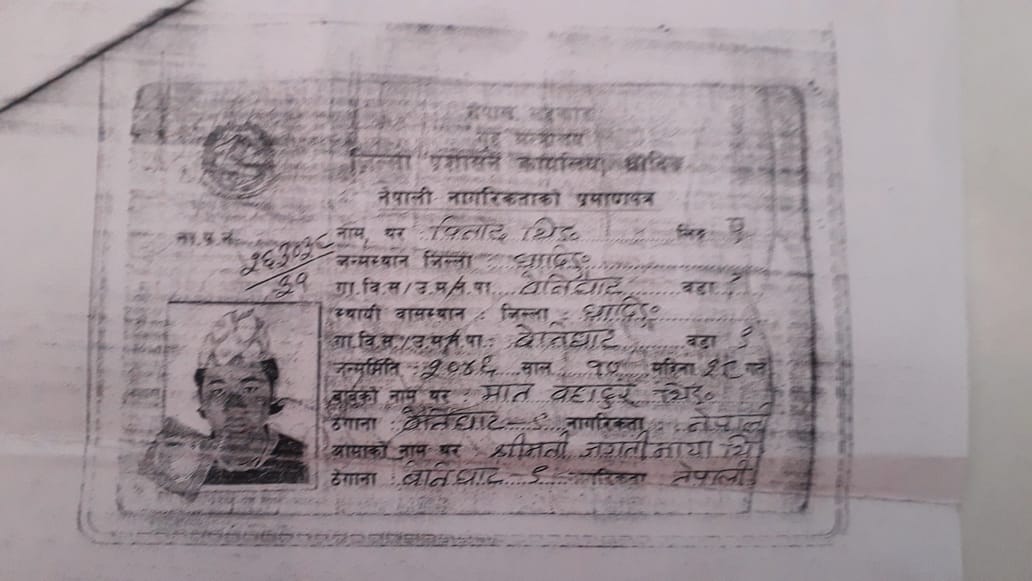 नेपाल सरकार
गृह मन्त्रालय
जिल्ला प्रशासन कार्यालय, धादिङ
नेपाली नागरिकताको प्रमाणपत्र
ना.प्र.नं.
नाम, थर : थिङ लिङ्ग पु
जन्मस्थान जिल्ला : धादिङ
गा.वि.स/उ.म/न.पा. बेनिघाट वडा
स्थायी वासस्थान : जिल्ला : धादिङ
गा.वि.स/उ.म/न.पा. : बेनिघाट वडा
जन्ममिति : २०४६ साल १० महिना २८ गते
बाबुको नाम थर : मान बहादुर थिङ
ठेगाना : बेनिघाट नागरिकता : नेपाली
आमाको नाम थर : श्रीमती माया थि
ठेगाना : बेनिघाट नागरिकता नेपाली